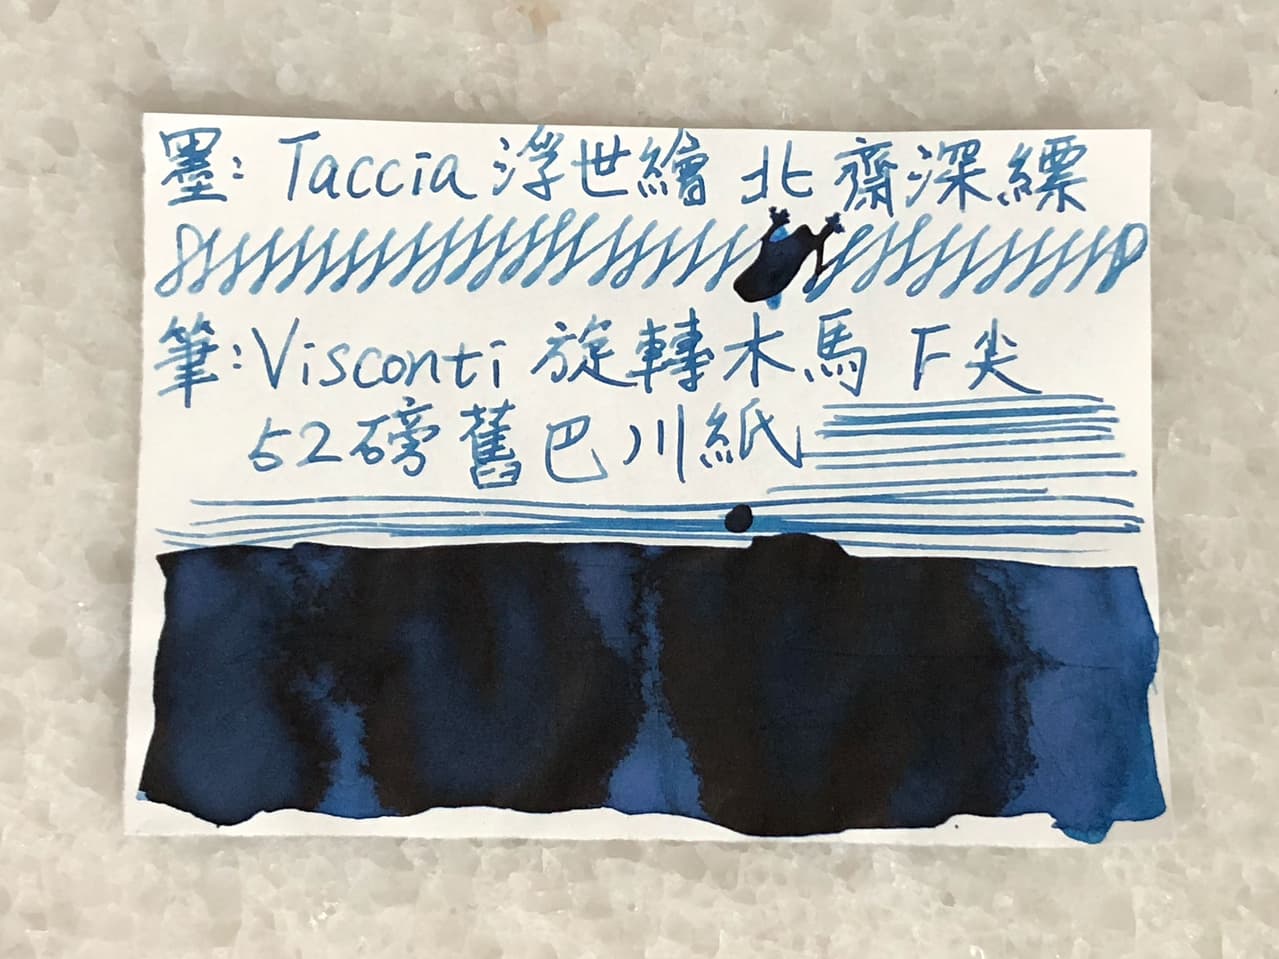 墨: Taccia 浮世繪 北齋深縹
筆: Visconti 旋轉木馬 F尖
52磅舊巴川紙